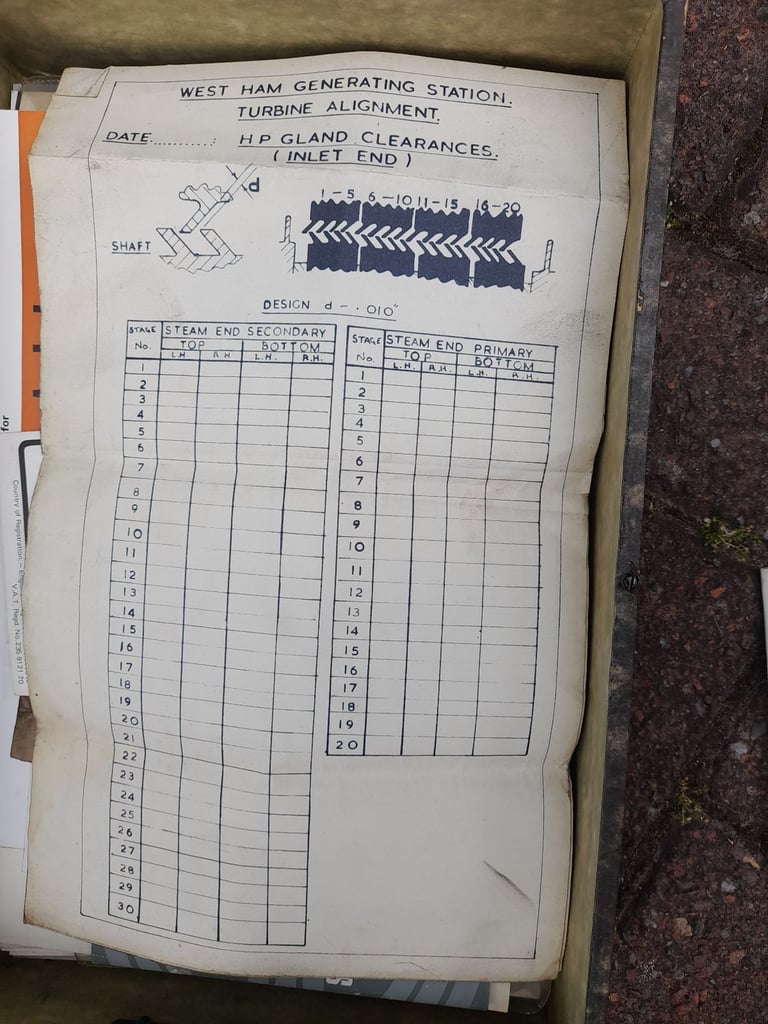 WEST HAM GENERATING STATION.
TURBINE ALIGNMENT.
DATE..........: HP GLAND CLEARANCES.
( INLET END )
d
1 - 5 6 - 10 11 - 15 16 - 20
SHAFT
DESIGN d - .010"
STAGE No. STEAM END SECONDARY
TOP BOTTOM
L.H. R.H L.H. R.H.
1
2
3
4
5
6
7
8
9
10
11
12
13
14
15
16
17
18
19
20
21
22
23
24
25
26
27
28
29
30
STAGE No. STEAM END PRIMARY
TOP BOTTOM
L.H. R.H. L.H. R.H.
1
2
3
4
5
6
7
8
9
10
11
12
13
14
15
16
17
18
19
20
for
Country of Registration –
V.A.T. Regd No.